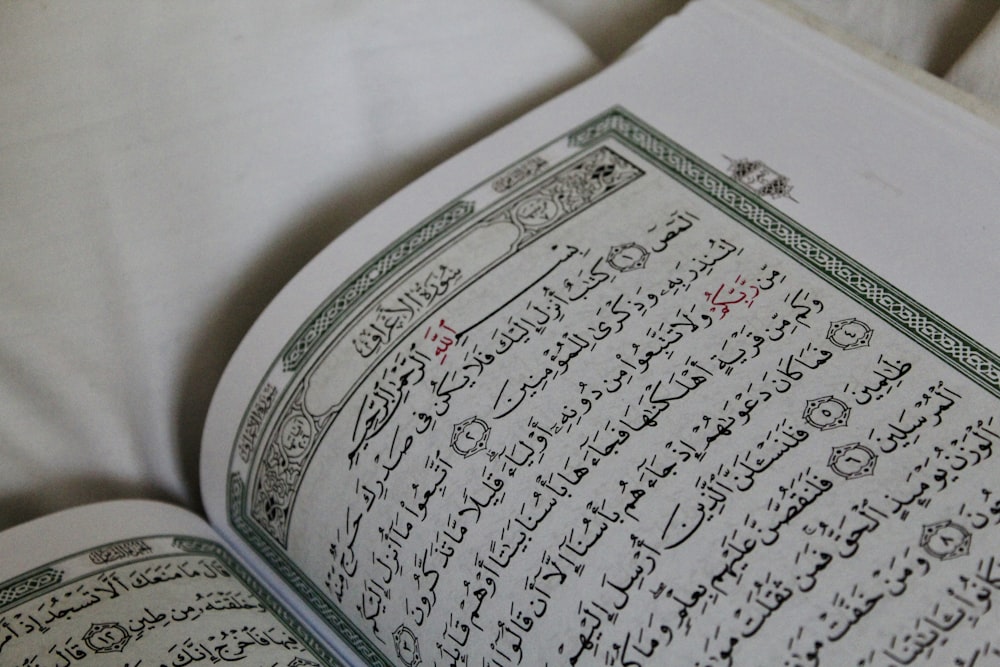 سُورَةُ الأَعْرَافِ
بِسْمِ اللَّهِ الرَّحْمَٰنِ الرَّحِيمِ
الٓمٓصٓ ١ كِتَٰبٌ أُنزِلَ إِلَيْكَ فَلَا يَكُن فِى صَدْرِكَ حَرَجٌ مِّنْهُ
لِتُنذِرَ بِهِۦ وَذِكْرَىٰ لِلْمُؤْمِنِينَ ٢ ٱتَّبِعُوا۟ مَآ أُنزِلَ إِلَيْكُم
مِّن رَّبِّكُمْ وَلَا تَتَّبِعُوا۟ مِن دُونِهِۦٓ أَوْلِيَآءَ قَلِيلًا مَّا تَذَكَّرُونَ ٣
وَكَم مِّن قَرْيَةٍ أَهْلَكْنَٰهَا فَجَآءَهَا بَأْسُنَا بَيَٰتًا أَوْ هُمْ قَآئِلُونَ
٤ فَمَا كَانَ دَعْوَىٰهُمْ إِذْ جَآءَهُم بَأْسُنَآ إِلَّآ أَن قَالُوٓا۟
ظَٰلِمِينَ ٥ فَلَنَسْـَٔلَنَّ ٱلَّذِينَ أُرْسِلَ إِلَيْهِمْ
ٱلْمُرْسَلِينَ ٦ فَلَنَقُصَّنَّ عَلَيْهِم بِعِلْمٍ وَمَا
وَٱلْوَزْنُ يَوْمَئِذٍ ٱلْحَقُّ فَمَن ثَقُلَتْ
٨ وَمَنْ خَفَّتْ
كَانُوا۟ بِـَٔايَٰتِنَا
قَالَ مَا مَنَعَكَ أَلَّا تَسْجُدَ إِذْ
خَلَقْتَهُۥ مِن طِينٍ ١٢ قَالَ
فِيهَا فَٱخْرُجْ إِنَّكَ